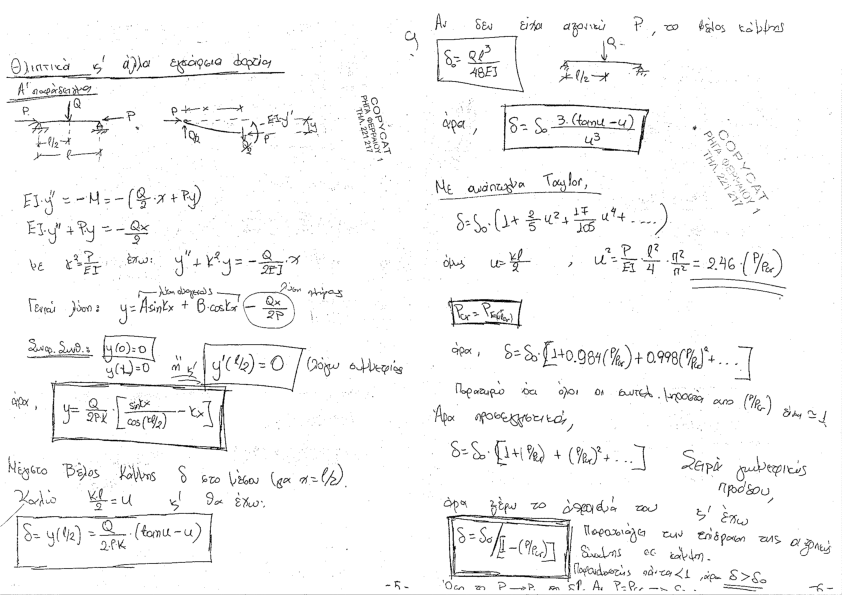 Θλιπτικά κ' άλλα εγκάρσια φορτία
Α' παράδειγμα
P
Q
P
l/2
l
P
x
EI·y'
y
Q/2
P
COPYCAT
ΡΗΓΑ ΦΕΡΡΑΙΟΥ 1
ΤΗΛ. 221 217
EI·y'' = -M = -(Q/2·x + Py)
EI·y'' + Py = -Qx/2
με k² = P/EI έχω: y'' + k²y = -Q/2EI·x
Γενική λύση: y = A sinkx + B·coskx - Qx/2P
Συνορ. Συνθ.: y(0)=0
y(L)=0 ή κ' y'(l/2) = 0 (λόγω συμμετρίας
άρα, y = Q/2PK · [sinkx/cos(kl/2) - kx]
Μέγιστο Βέλος Κάμψης δ στο μέσον (για x = l/2).
Καλώ kl/2 = u κ' θα έχω:
δ = y(l/2) = Q/2·PK · (tanu - u)
-5-
Αν δεν είχα αξονική P, το βέλος κάμψης
δ₀ = Ql³/48EI
Q
l/2
άρα, δ = δ₀ 3·(tanu - u)/u³
COPYCAT
ΡΗΓΑ ΦΕΡΡΑΙΟΥ 1
ΤΗΛ. 221 217
Με ανάπτυγμα Taylor,
δ = δ₀·(1 + 2/5 u² + 17/105 u⁴ + .....)
όμως u = kl/2 , u² = P/EI · l²/4 · π²/π² = 2.46·(P/Pcr)
Pcr = P(Euler)
άρα, δ = δ₀·[1+0.984(P/Pcr) + 0.998(P/Pcr)² + ...]
Παρατηρώ ότι όλοι οι συντελ. μπροστά από (P/Pcr) είναι ≃ 1
Άρα προσεγγιστικά,
δ = δ₀·[1+(P/Pcr) + (P/Pcr)² + ...] Σειρά γεωμετρικής
προόδου,
άρα ξέρω το άθροισμά του κ' έχω
δ = δ₀/[1-(P/Pcr)] Παρουσιάζει την επίδραση της αξονικής
δύναμης σε κάμψη.
Παρονομαστής πάντα <1, άρα δ > δ₀
-6-